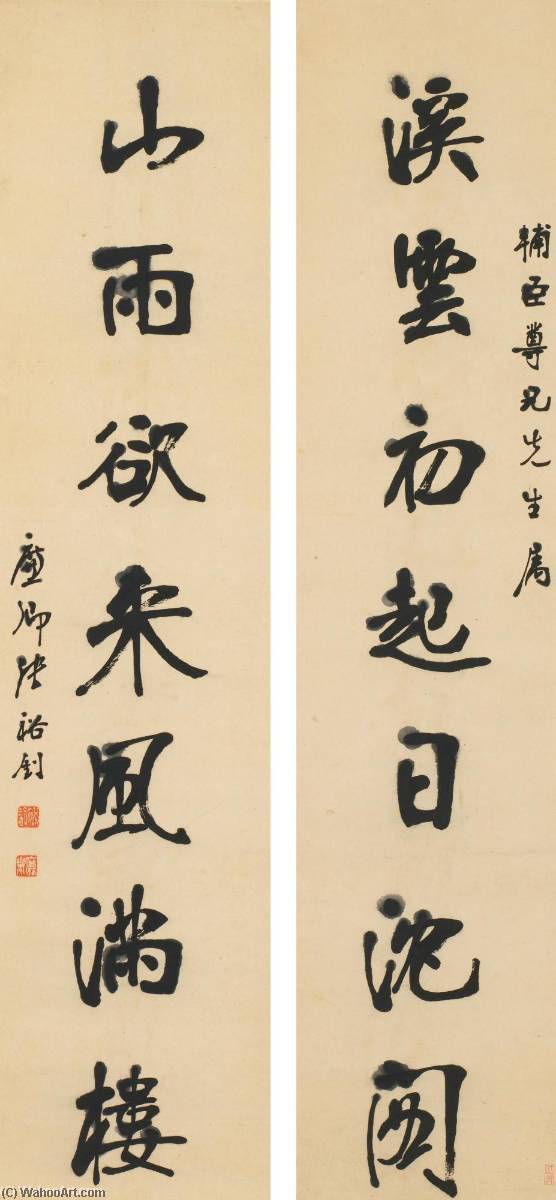 輔臣尊兄先生属
溪雲初起日沈閣
山雨欲来風滿樓
廉卿張裕釗
(C) WahooArt.com